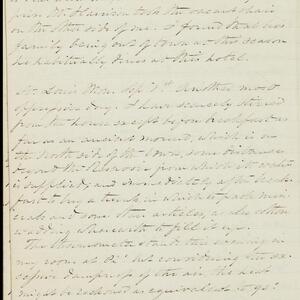 from Mr. Harrison took the vacant chair
on the other side of me. I found that his
family being out of town at this season
he habitually dines at this hotel.
St. Louis Mon. Sept. 1st. Another most
oppressive day. I have scarcely stirred
from the house except before breakfast as
far as an ancient mound, which is on
the North side of the town, some distance
beyond the Reservoir from which the water
is supplied, and immediately after break-
fast to buy a trunk in which to pack min-
erals and some other articles, as also cotton
wadding wherewith to fill it up.
The thermometer stands this evening in
my room at 82° but considering the ex-
cessive dampness of the air the heat
might be reckoned as equivalent to 90°